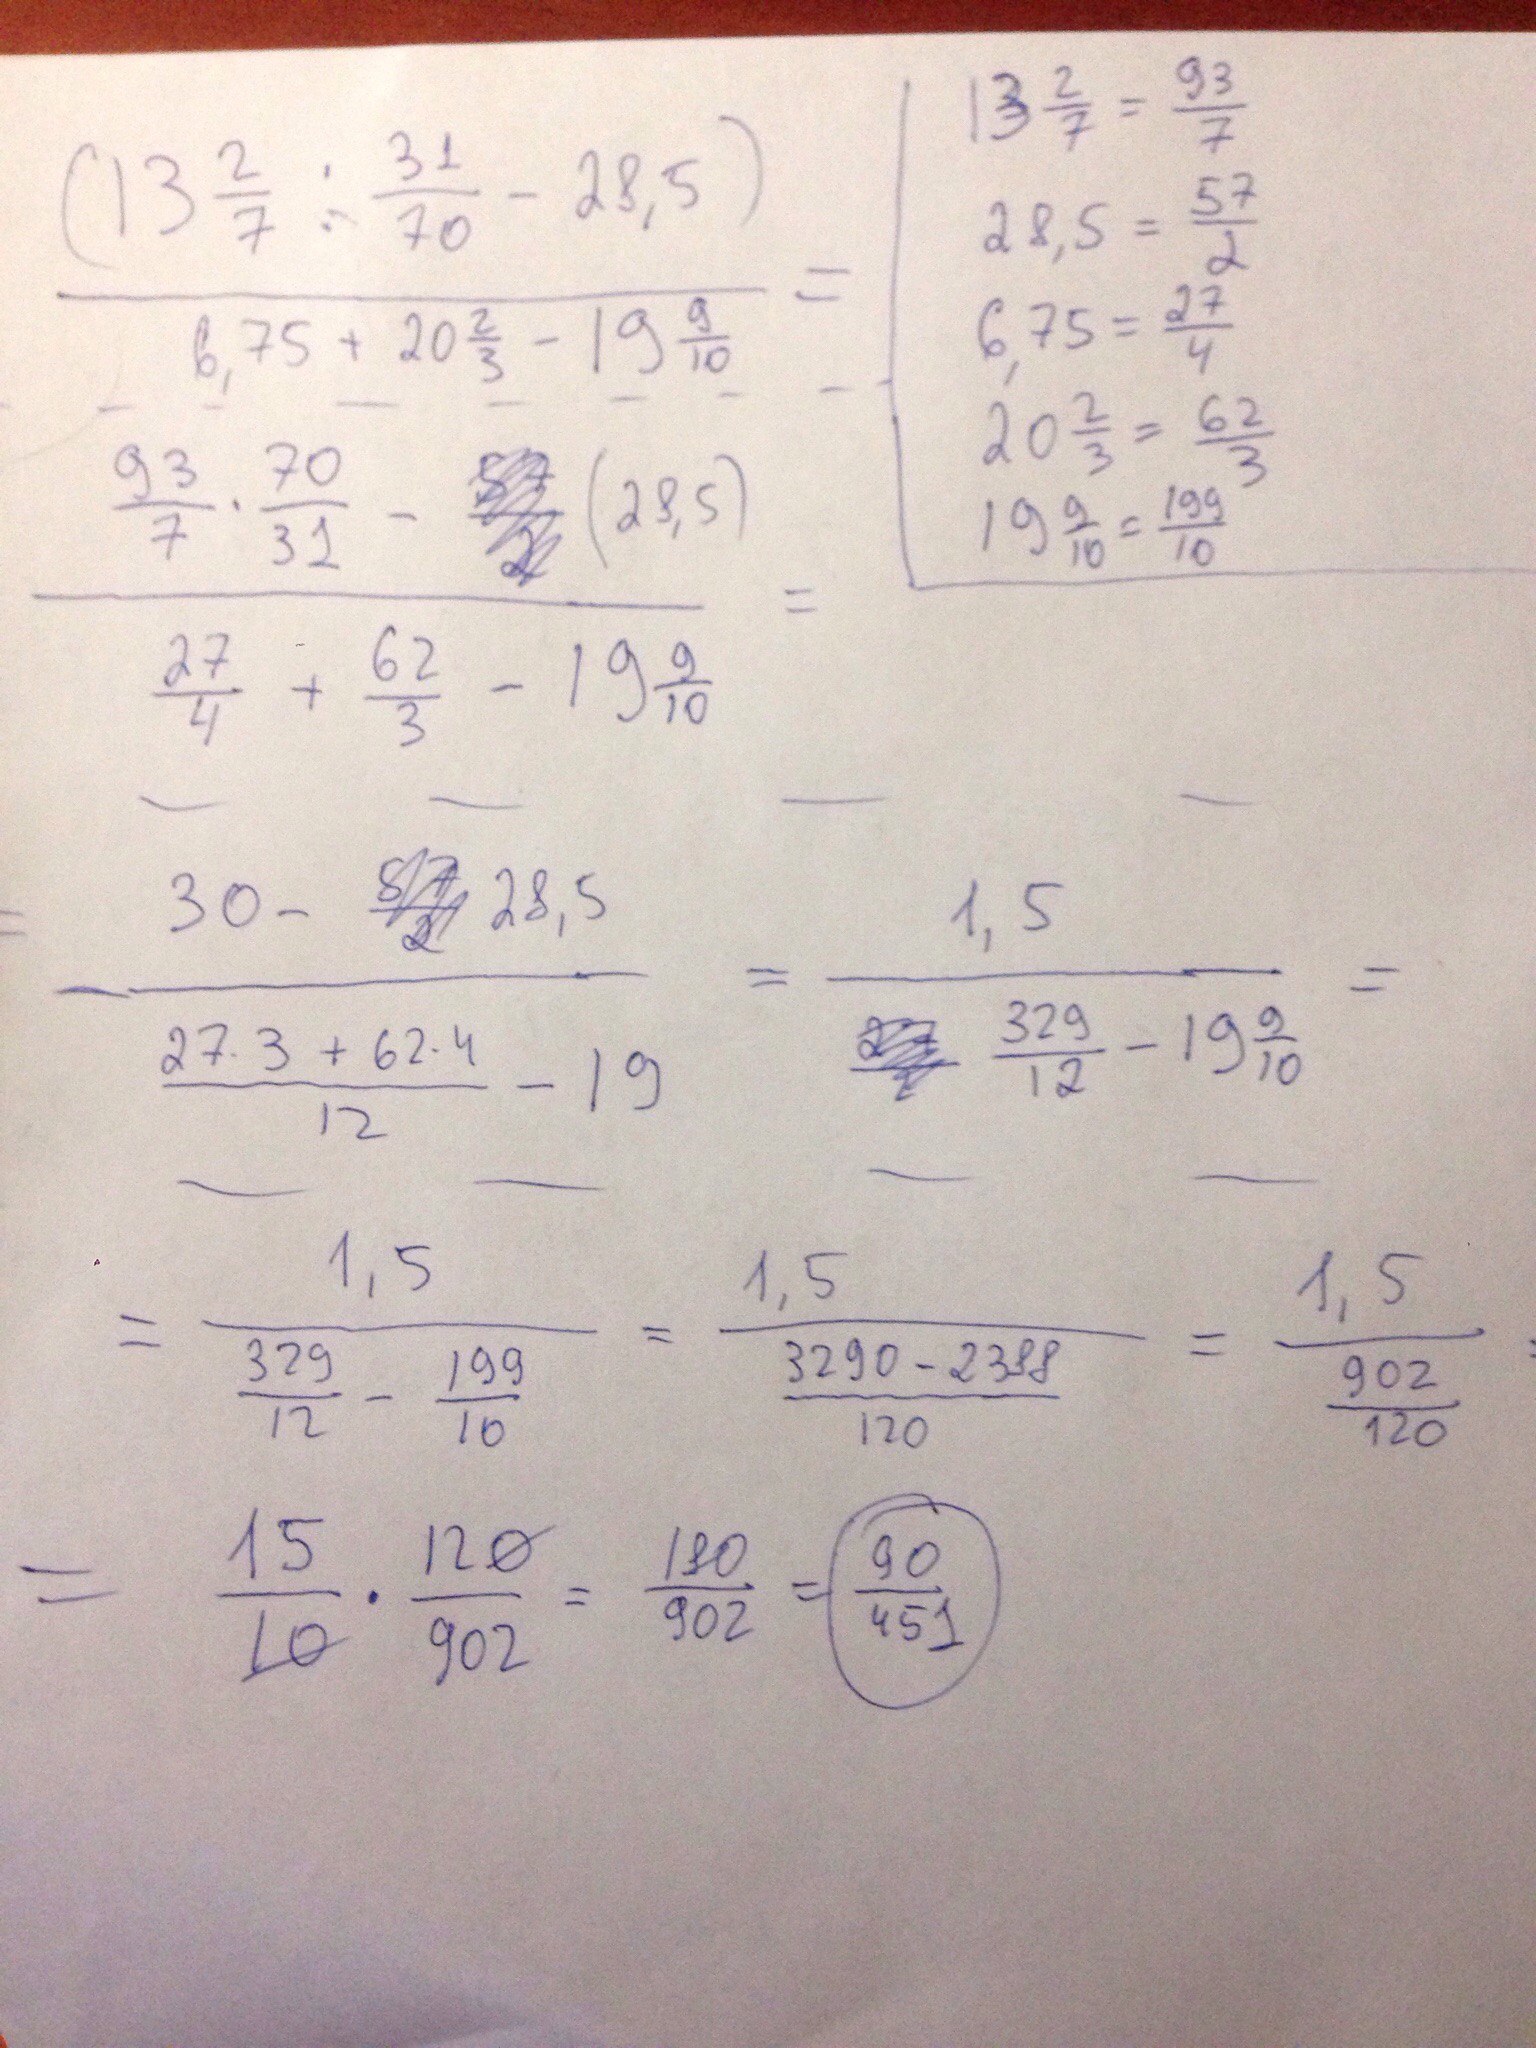 (13 2/7 : 31/70 - 28,5) / (6,75 + 20 2/3 - 19 9/10) =
13 2/7 = 93/7
28,5 = 57/2
6,75 = 27/4
20 2/3 = 62/3
19 9/10 = 199/10
(93/7 · 70/31 - (28,5)) / (27/4 + 62/3 - 19 9/10) =
= (30 - 28,5) / ((27·3 + 62·4)/12 - 19) = 1,5 / (329/12 - 19 9/10) =
= 1,5 / (329/12 - 199/10) = 1,5 / ((3290 - 2388)/120) = 1,5 / (902/120) =
= 15/10 · 120/902 = 180/902 = 90/451